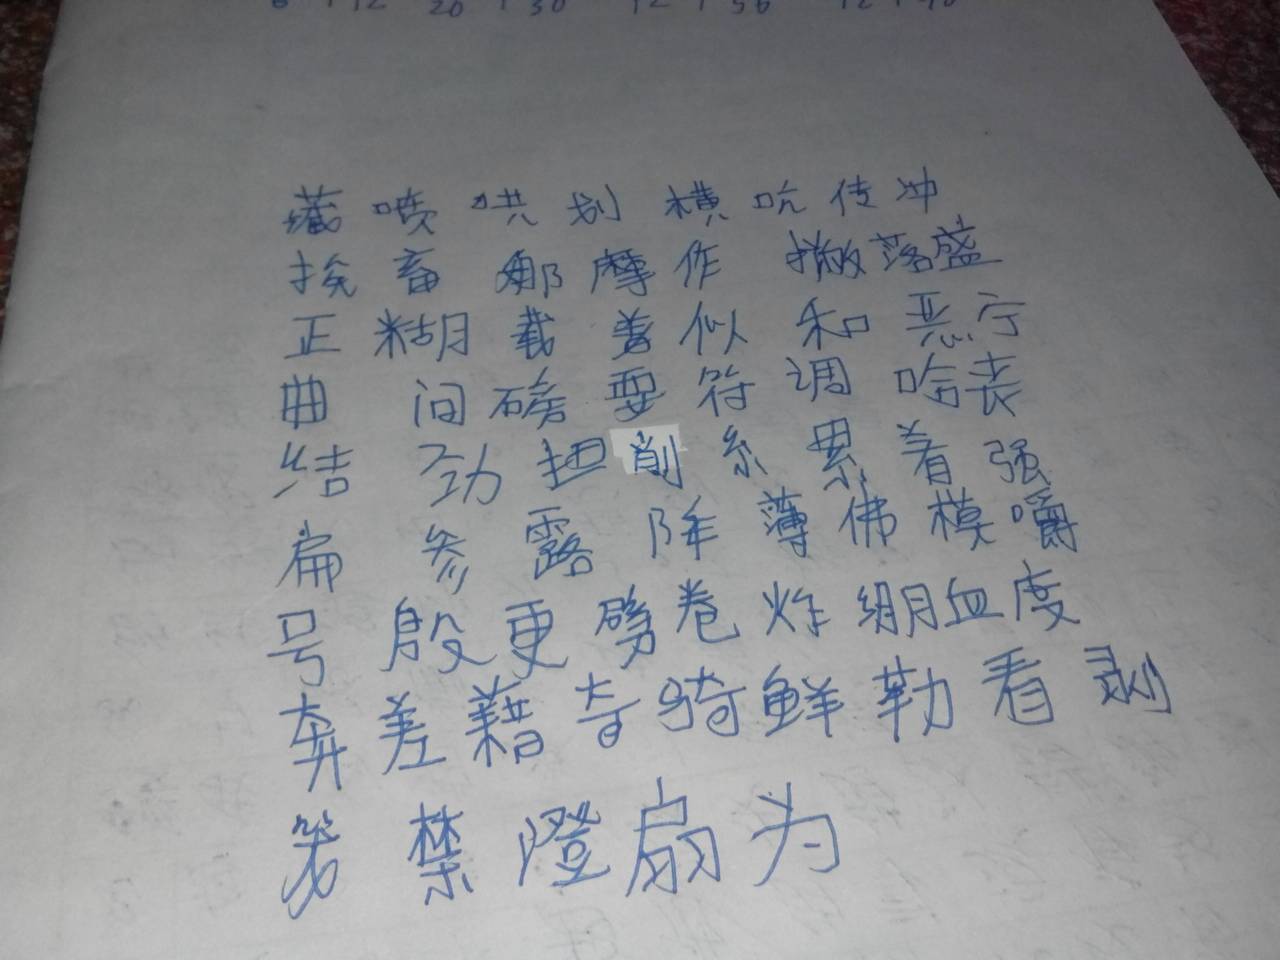 藏 喷 哄 划 横 吭 传 冲
挨 畜 那 摩 作 撒 落 盛
正 糊 载 着 似 和 恶 宁
曲 间 磅 要 符 调 哈 丧
结 劲 担 削 系 累 着 强
扁 参 露 降 薄 佛 模 嚼
号 殷 更 劈 卷 炸 绷 血 度
奔 差 藉 奇 骑 鲜 勒 看 剥
禁 澄 扇 为